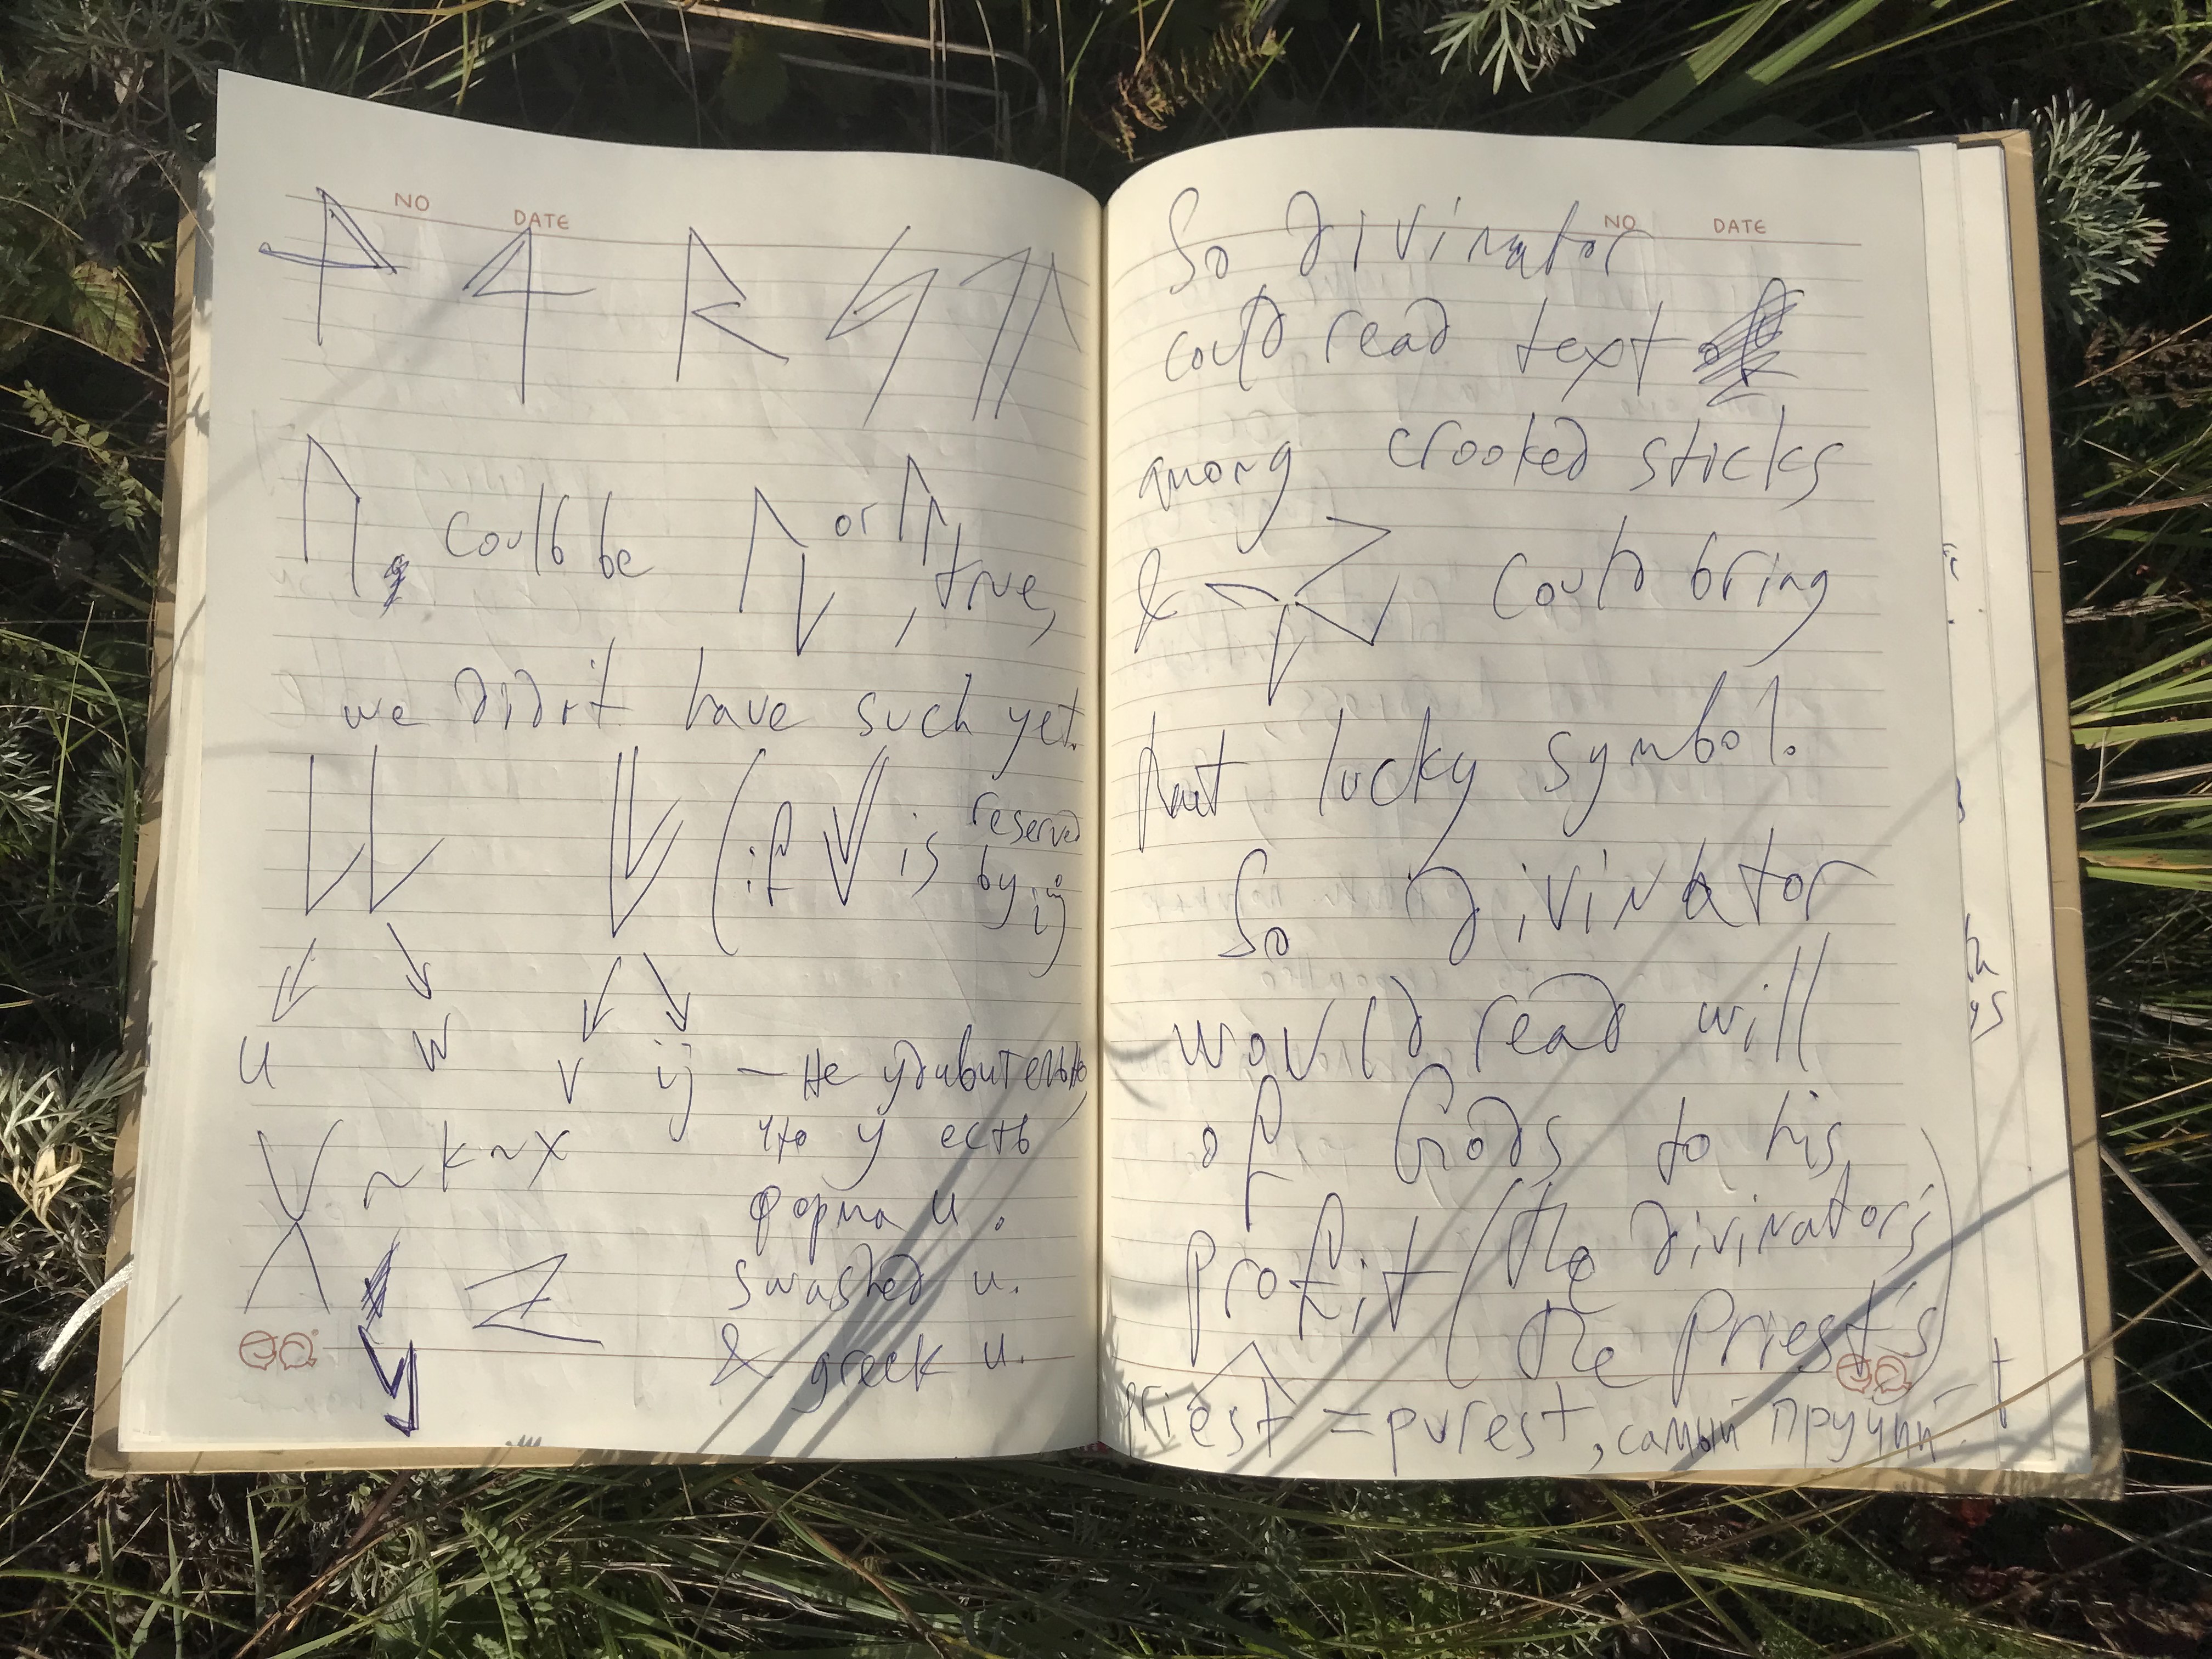 NO
DATE
could be
or
, true,
we didn't have such yet.
(if V is reserved
by ij)
u w v ij — Не удивительно
что у есть
форма и.
swashed u.
& greek u.
X ~ k ~ x
Z
NO
DATE
So divinator
could read text
among crooked sticks
& could bring
that lucky symbol.
So divinator
would read will
of Gods to his
profit / the divinator's
(the priest's)
priest = purest, самый